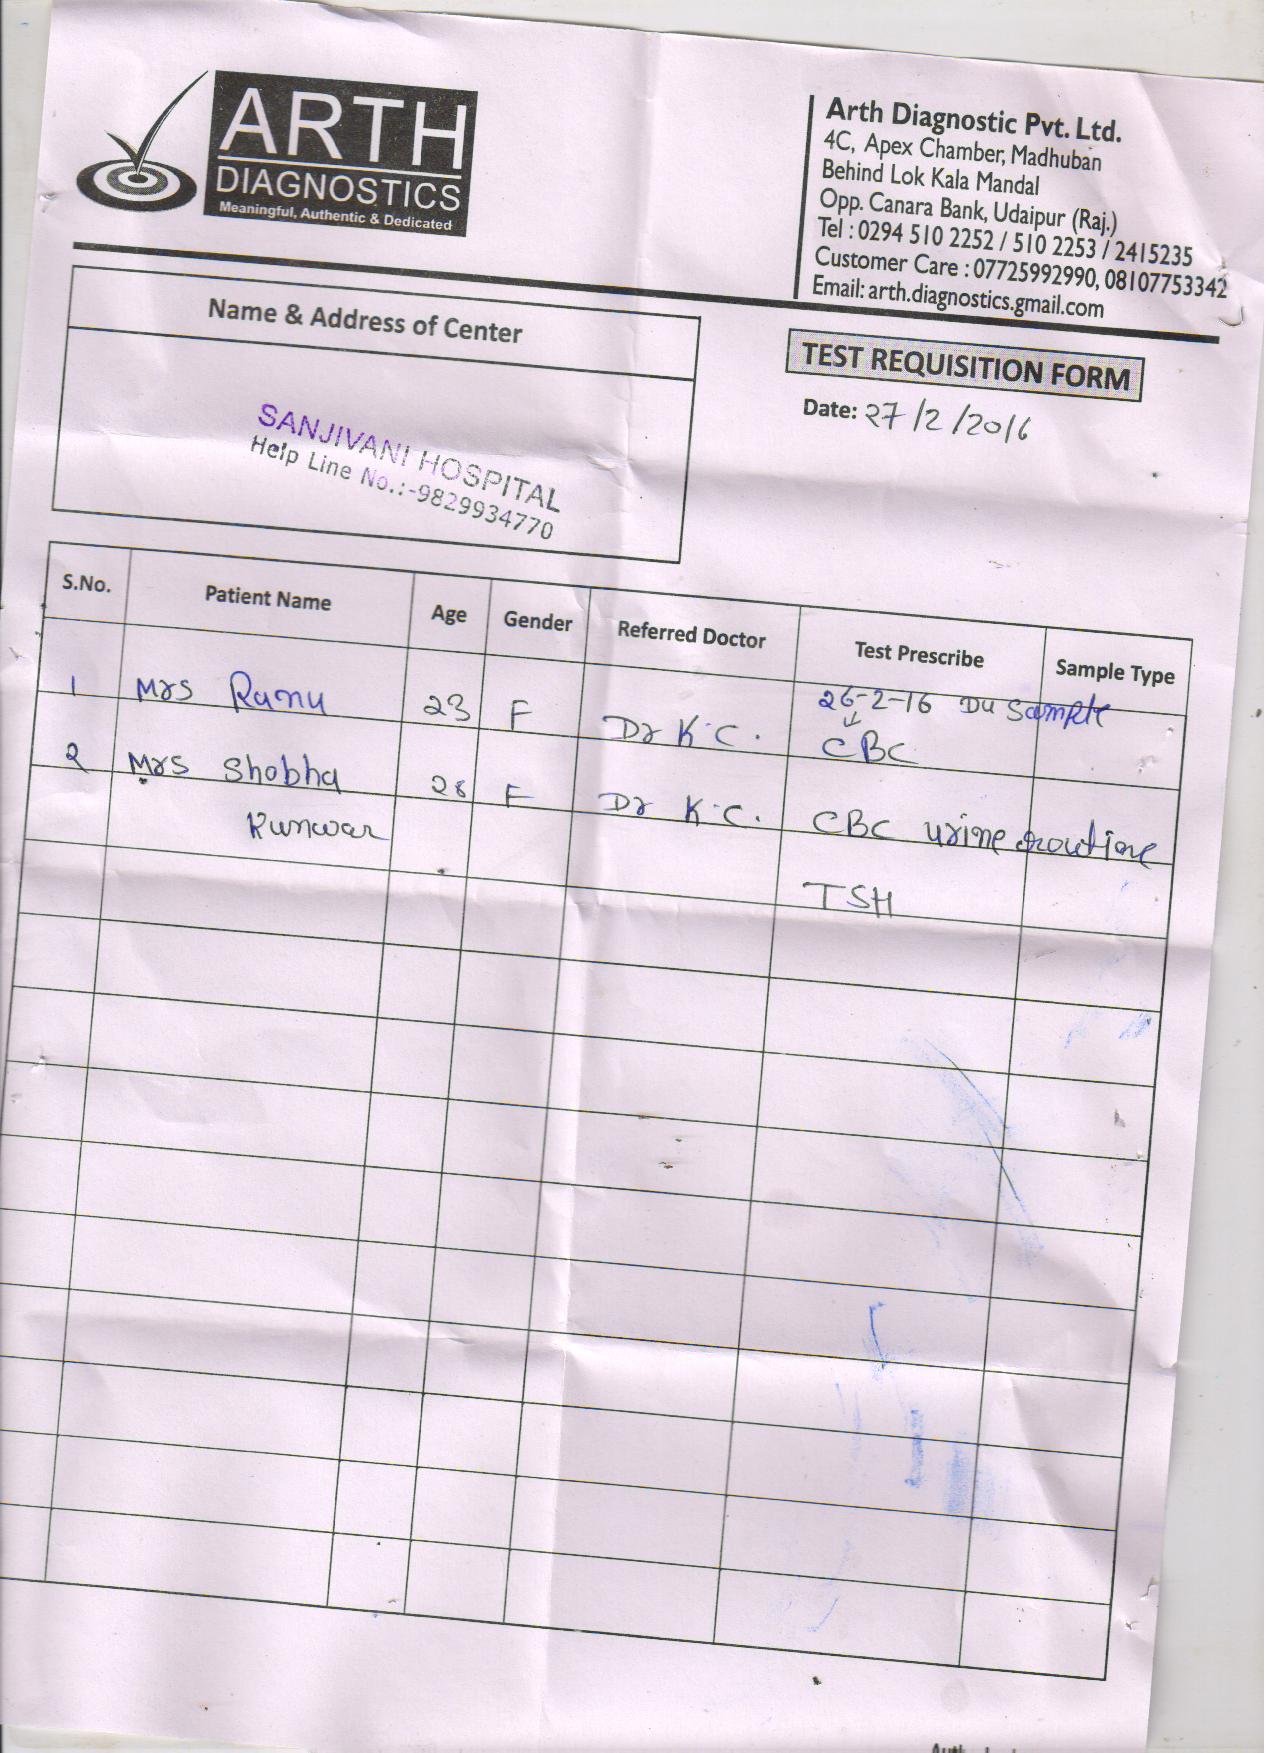 ARTH
DIAGNOSTICS
Meaningful, Authentic & Dedicated
Arth Diagnostic Pvt. Ltd.
4C, Apex Chamber, Madhuban
Behind Lok Kala Mandal
Opp. Canara Bank, Udaipur (Raj.)
Tel : 0294 510 2252 / 510 2253 / 2415235
Customer Care : 07725992990, 08107753342
Email: arth.diagnostics.gmail.com
Name & Address of Center
SANJIVANI HOSPITAL
Help Line No.:-9829934770
TEST REQUISITION FORM
Date: 27/2/2016
S.No. Patient Name Age Gender Referred Doctor Test Prescribe Sample Type
26-2-16 Du Sample
1 Mrs Ranu 23 F Dr K.C. CBC
2 Mrs Shobha 28 F Dr K.C. CBC urine routine
Kunwar
TSH